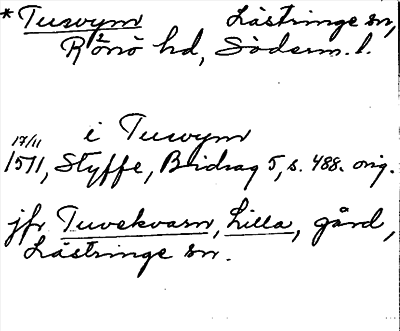 * Tuvvym Lästringe sn,
Rönö hd, Söderm. l.
i Tuvvym
17/11
1511, Styffe, Bidrag 5, s. 488. orig.
jfr Tuvekvarn, Lilla, gård,
Lästringe sn.